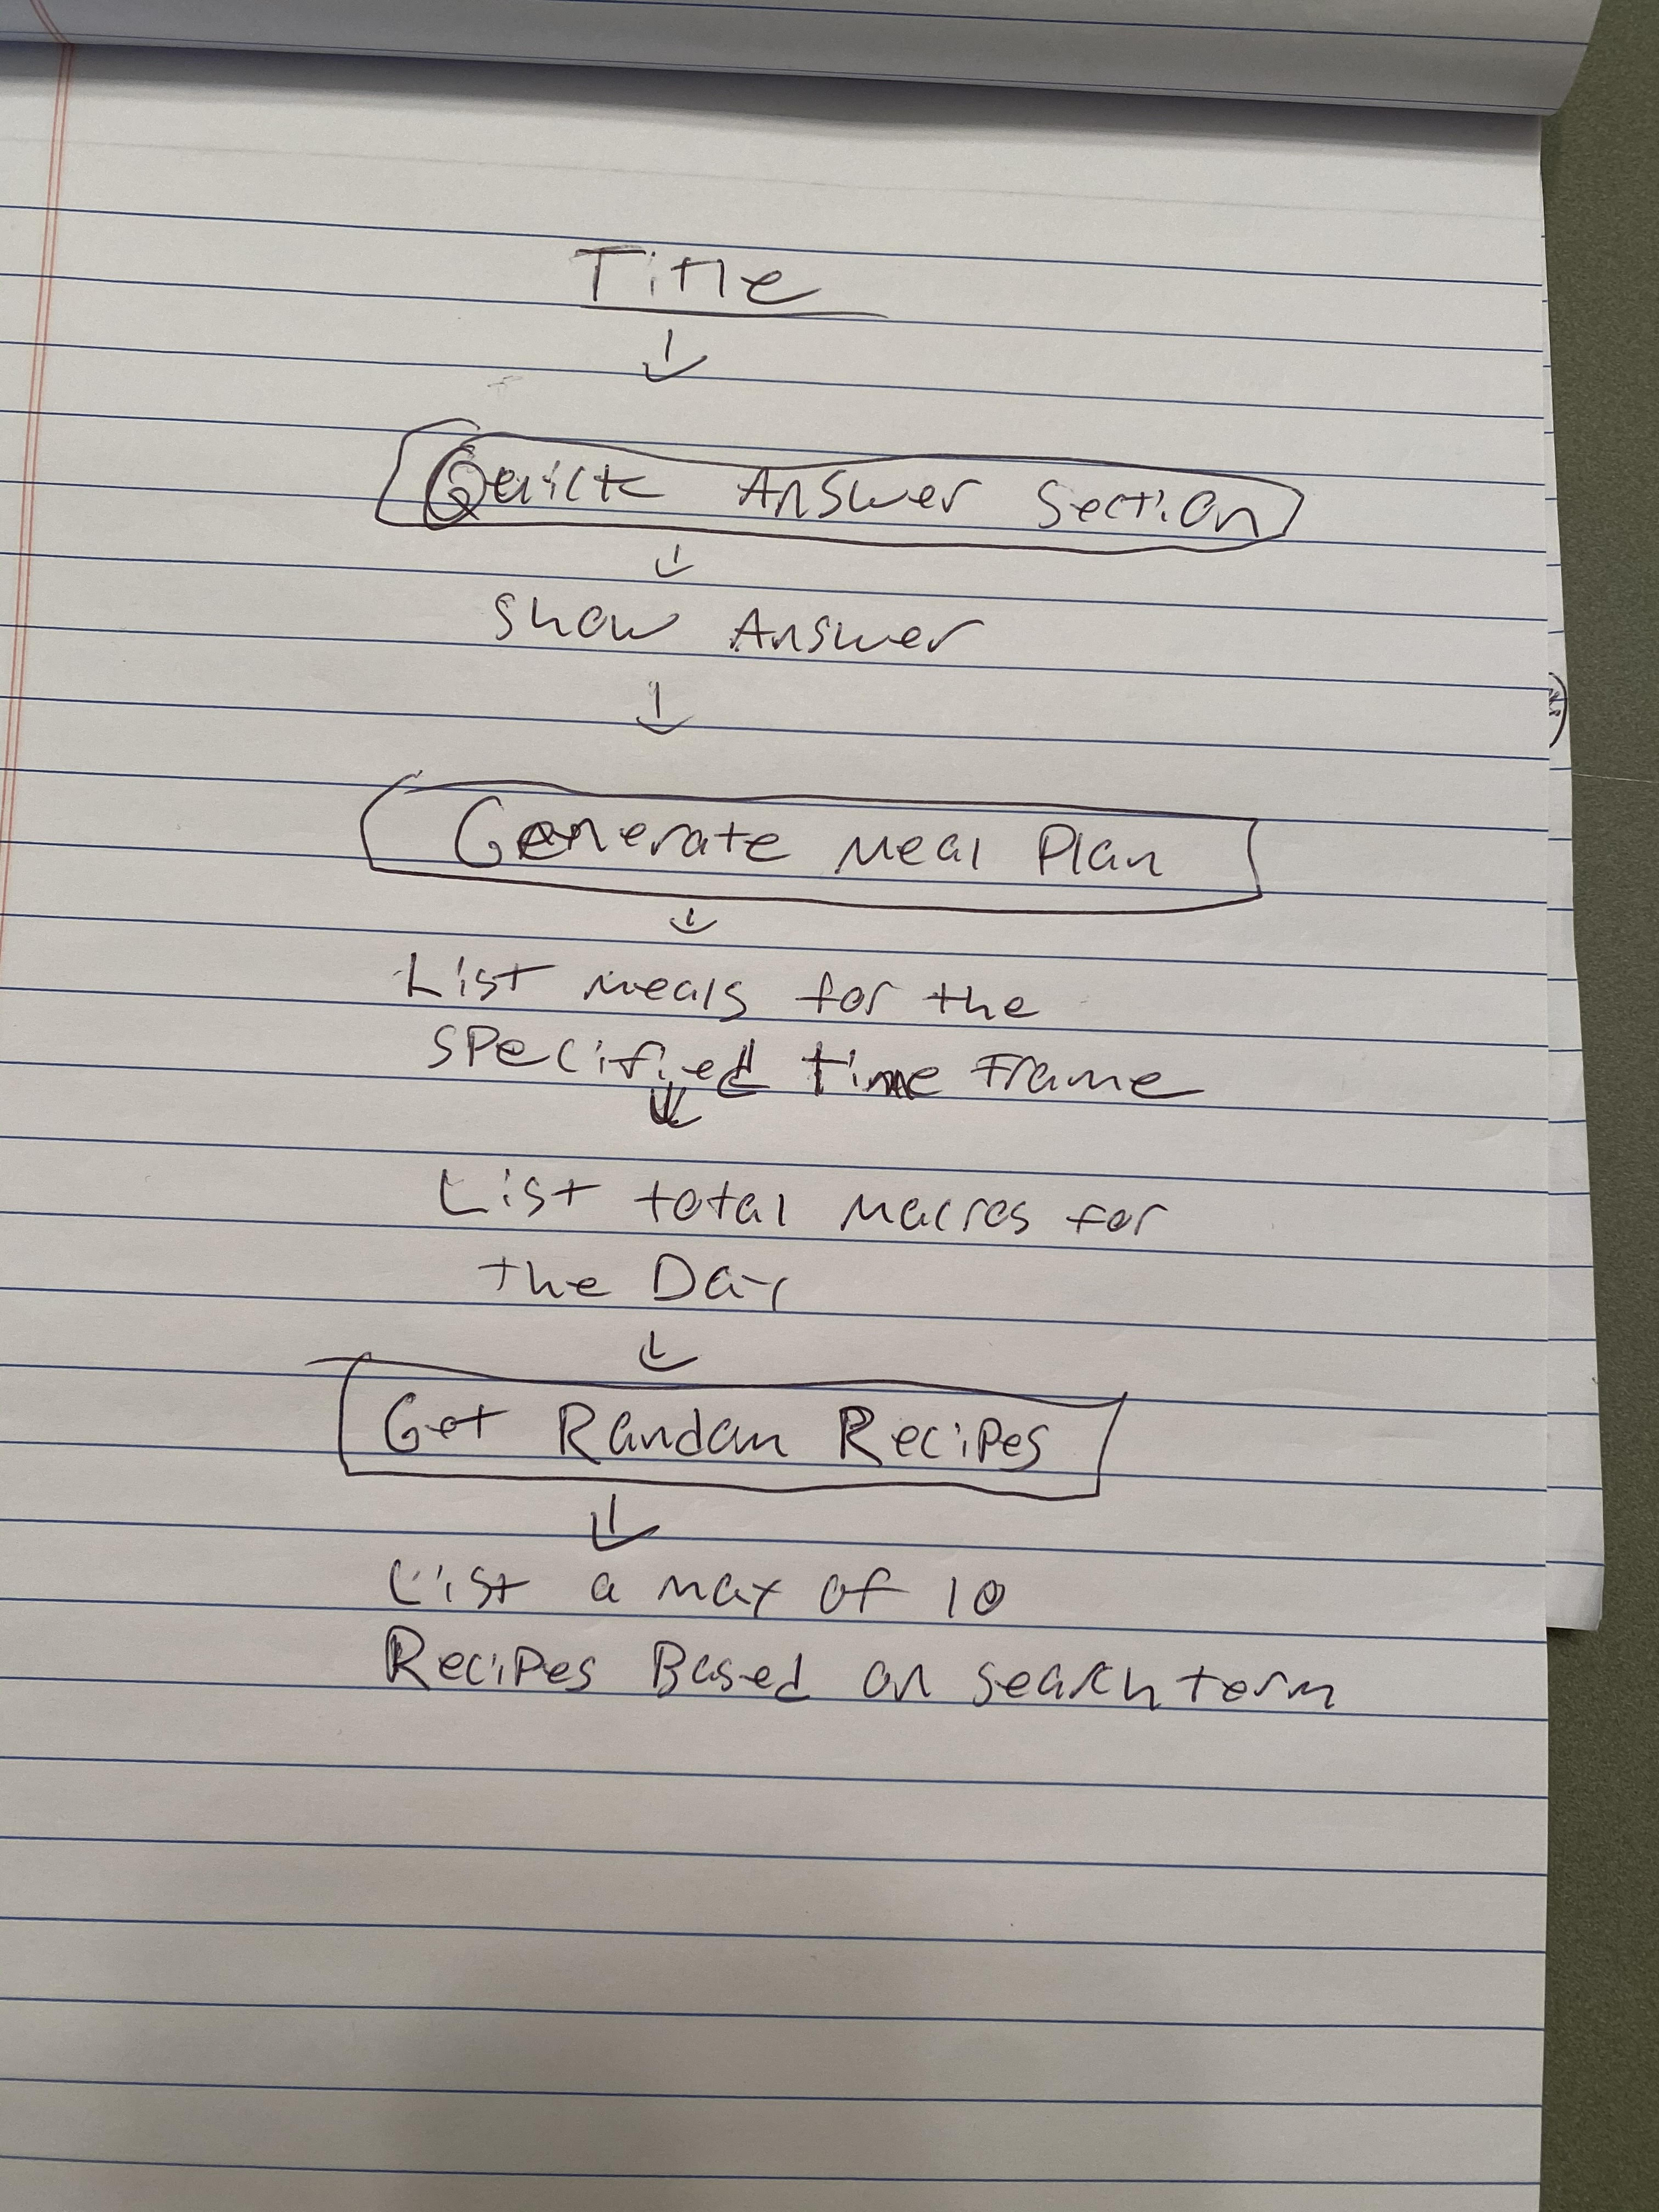 Title
Quick Answer Section
Show Answer
Generate Meal Plan
List meals for the
specified time frame
List total macros for
the Day
Get Random Recipes
List a max of 10
Recipes Based on search term